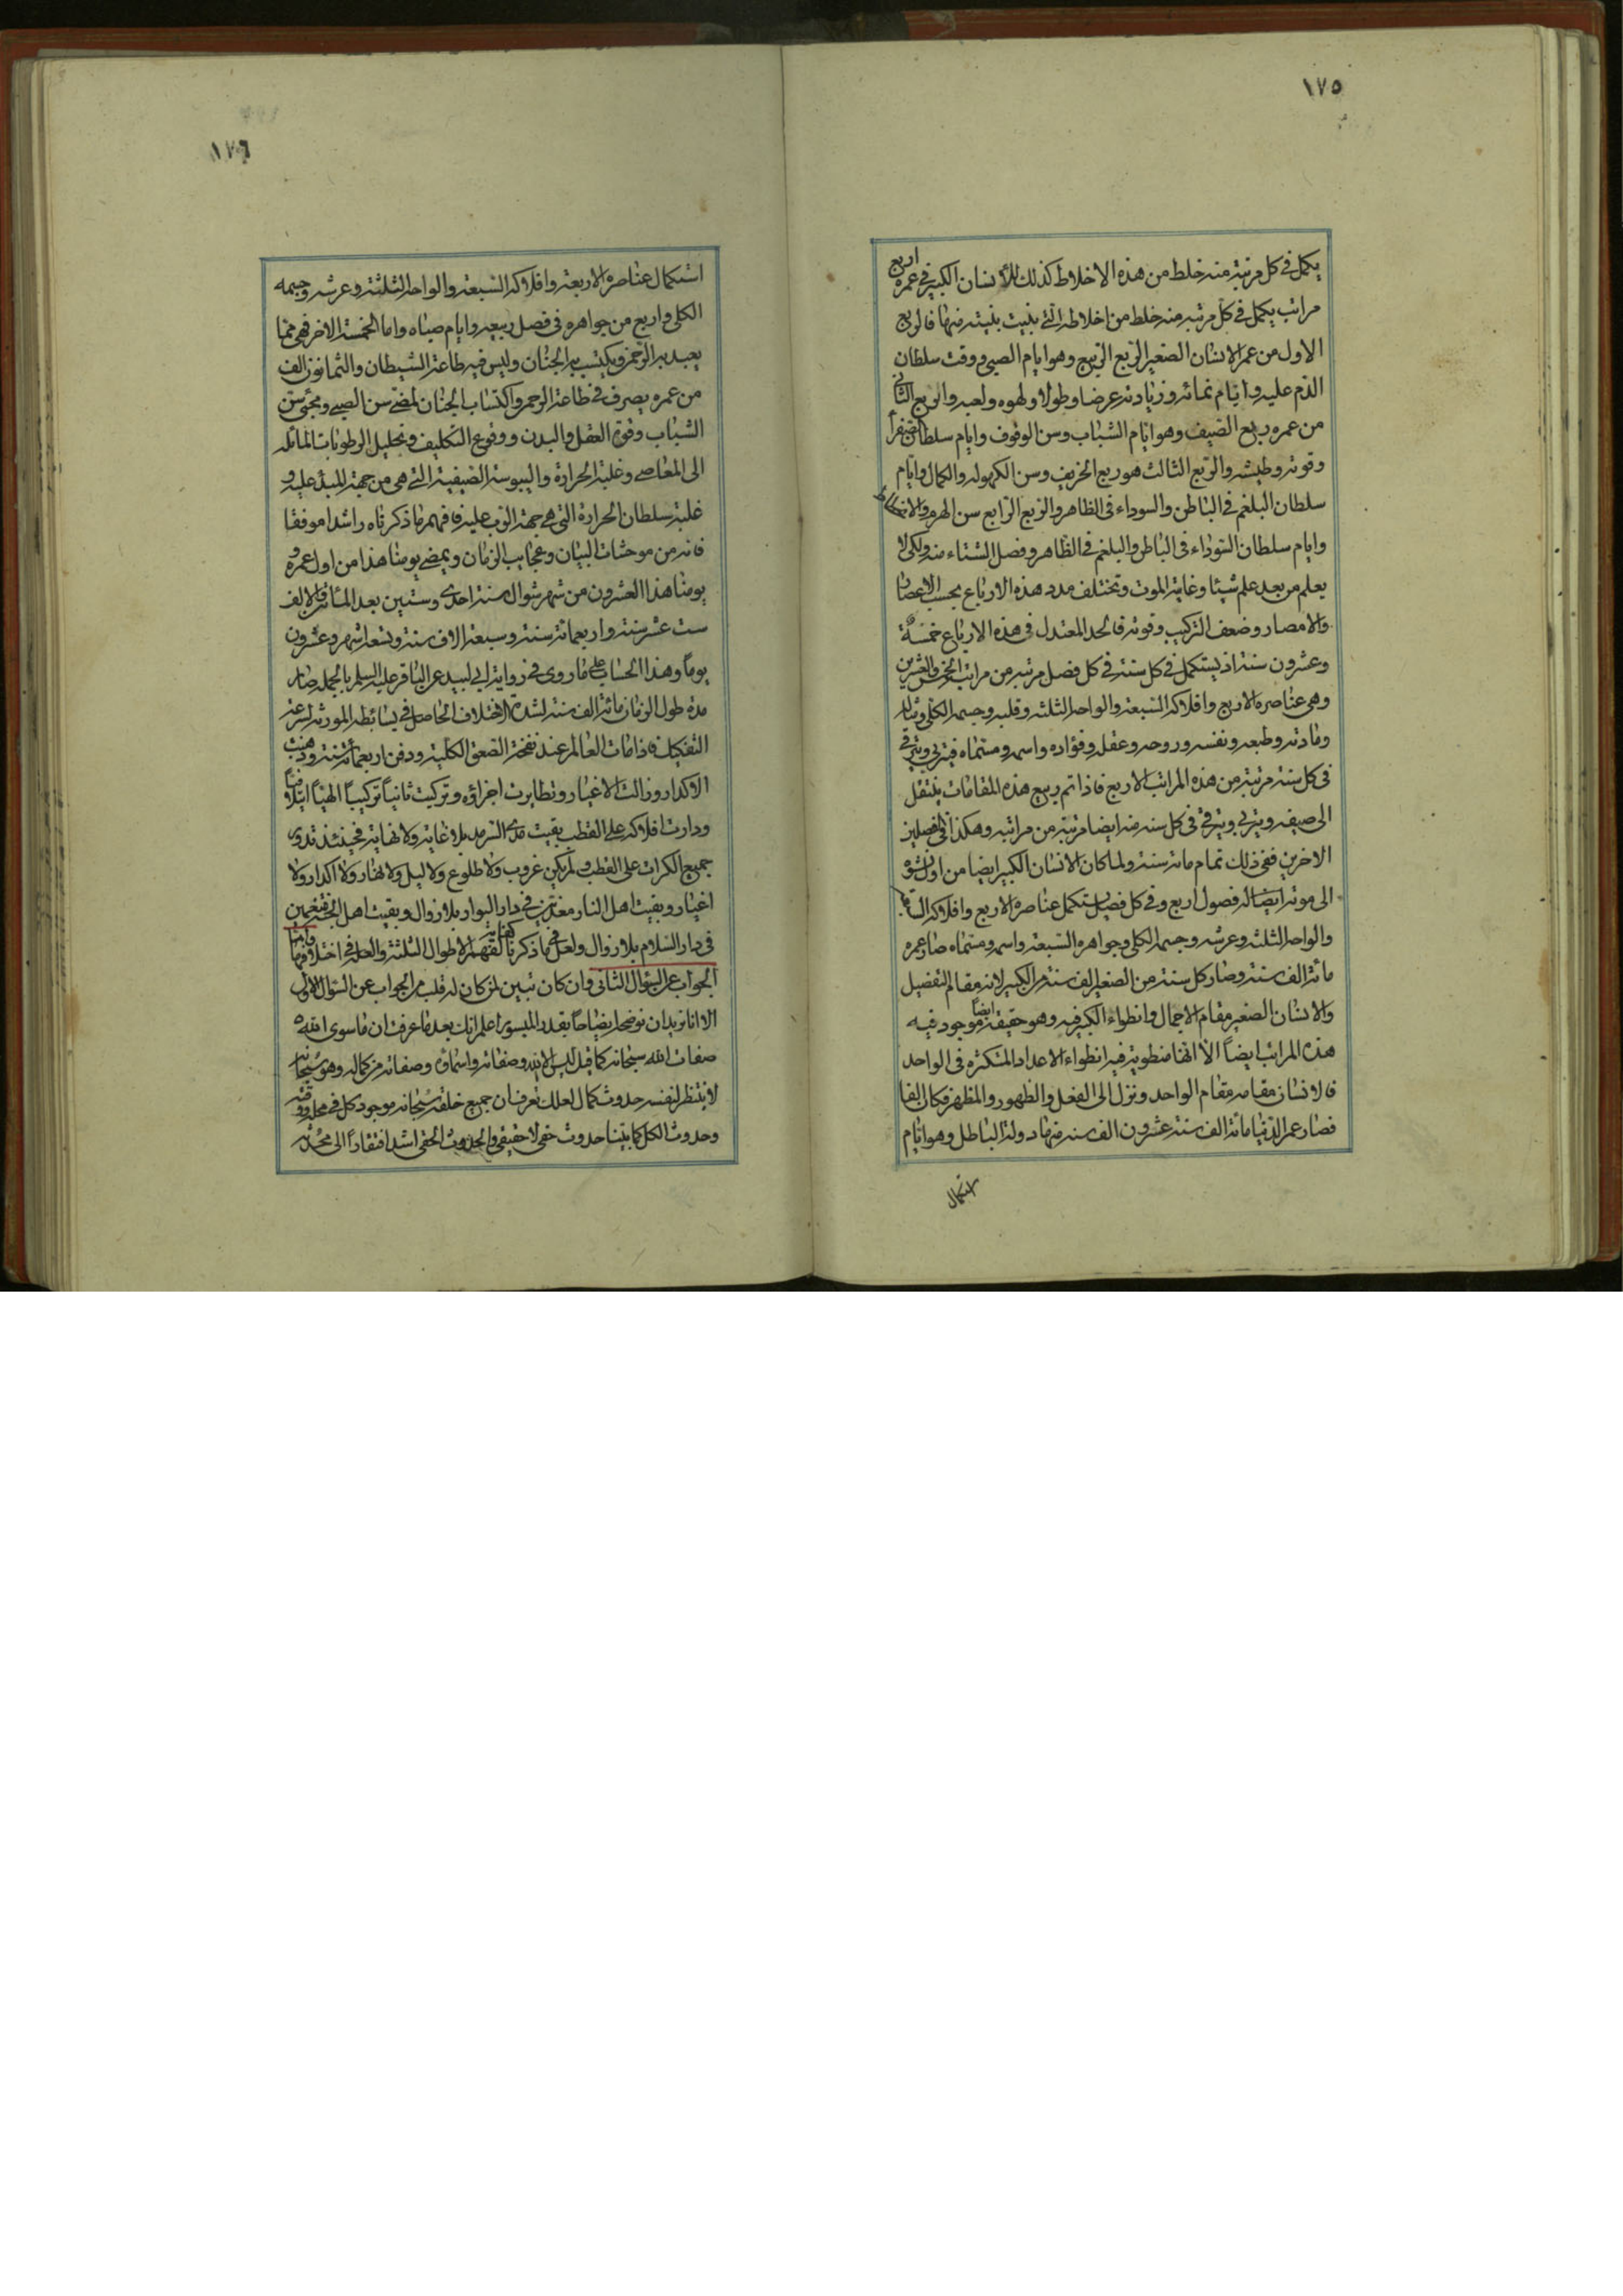 ١٧٥
يكمل في كل مرتبة منه خلط من هذه الاخلاط كذلك للأنسان الكبير في عمره اربع
مراتب يكمل في كل مرتبه منه خلط من اخلاطه التي بنيت بنيته منها فالربع
الاول من عمر الانسان الصغير الربع الربيع وهو ايام الصبي ووقت سلطان
الدم عليه وايام نمائه وزيادته عرضا وطولا ولهوه ولعبه والربع الثاني
من عمره ربع الصيف وهو ايام الشباب وسن الوقوف وايام سلطان الصفرا
وقوته وطيشه والربع الثالث هو ربع الخريف وسن الكهوله والكمال وايام
سلطان البلغم في الباطن والسوداء في الظاهر والربع الرابع سن الهرم والانحطاط
وايام سلطان السوداء في الباطن والبلغم في الظاهر وفصل الشتاء منه ولكي لا
يعلم من بعد علم شيئا وغايته الموت وتختلف مدد هذه الارباع بحسب الاعصار
والامصار وضعف التركيب وقوته فالحد المعتدل في هذه الارباع خمسة
وعشرون سنة اذ يستكمل في كل سنة في كل فصل مرتبه من مراتبه الخمس والعشرين
وهي عناصره الاربع وافلاكه السبعة والواحه الثلثه وقلبه وجسمه الكلي ومثاله
ومادته وطبعه ونفسه وروحه وعقله وفؤاده واسمه ومسماه فيتربي ويترقي
في كل سنة مرتبة من هذه المراتب الاربع فاذا تم ربيع هذه المقامات ينتقل
الى صيفه ويتربي ويترقي في كل سنه منه ايضا مرتبة من مراتبه وهكذا في الفصلين
الاخرين ففي ذلك تمام مائة سنة ولما كان الانسان الكبير ايضا من اول نشوه
الى موته ايضا له فصول اربع وفي كل فصل يستكمل عناصره الاربع وافلاكه السبعة
والواحه الثلثه وعرشه وجسمه الكلي وجواهره السبعة واسمه ومسماه صار عمره
مائة الف سنة وصار كل سنة من الصغير الف سنة من الكبير لانه مقام التفصيل
والانسان الصغير مقام الاجمال وانطواء الكبير فيه وهو حقيقة ايضا موجود فيه
هذه المراتب ايضاً الا انها منطوية فيه انطواء الاعداد المتكثره في الواحد
فالانسان مقامه مقام الواحد ونزل الى الفعل والظهور والمظهر فكان الفا
فصار عمر الدنيا مائة الف سنة عشرون الف سنه منها دولة الباطل وهو ايام
استكمال
١٧٦
استكمال عناصره الاربعة وافلاكه السبعة والواحه الثلثة وعرشه وجسمه
الكلي واربع من جواهره في فصل ربيعه وايام صباه واما الخمسة الاخر فهي مما
يعبد به الرحمن ويكتسب به الجنان وليس فيه طاعة الشيطان والثمانون الف
من عمره يصرف في طاعة الرحمن واكتساب الجنان لمضي سن الصبي ومجئ سن
الشباب وقوة العقل والبدن ووقوع التكليف وتحليل الرطوبات المائله
الى المعاصي وغلبة الحرارة واليبوسة الصيفية التي هي من جهة المبدء عليه و
غلبة سلطان الحرارة التي هي جهة الرب عليه فافهم ما ذكرناه راشدا موفقا
فانه من موحشات البيان وعجايب الزمان ويمضي يومنا هذا من اول عمره و
يومنا هذا العشرون من شهر شوال من سنة احدى وستين بعد المأتين والالف
ست عشر سنة واربعمائة سنة وسبعة الاف سنة وتسعة اشهر وعشرون
يوماً وهذا الحساب على ما روي في رواية ابي لبيد عن الباقر عليه السلم بالجمله صار
مدة طول الزمان مائة الف سنة لشدة الاختلاف الحاصل في بسائطه المورثة لسرعة
التفكيك فاذا مات العالم عند نفخة الصعق الكلية ودفن اربعمائة سنة وذهبت
الاكدار وزالت الاغيار وتطايرت اجزاؤه وتركبت ثانياً تركيباً الهياً ايتلافياً
ودارت افلاكه على القطب بقيت مدى السرمد بلا غاية ولا نهاية فحينئذ تدور
جميع الكرات على القطب ولم يكن غروب ولا طلوع ولا ليل ولا نهار ولا اكدار ولا
اغيار وبقيت اهل النار معذبين في دار البوار بلا زوال وبقيت اهل الجنة متنعمين
في دار السلام بلا زوال ولعل في ما ذكرنا كفاية لفهم الاطوال الثلثة والعلة في اختلافها واما
الجواب عن السؤال الثاني وان كان تبين لمن كان له قلب من الجواب عن السؤال الاول
الا انا نريد ان نوضحه ايضاحاً بقدر الميسور اعلم انك بعد ما عرفت ان ما سوى الله
صفات الله سبحانه كما قيل ليس الا الله وصفاته واسماؤه وصفاته من كماله وهو سبحانه
لا ينتظر لنفسه حدوث كمال لعلك تعرف ان جميع خلقه سبحانه موجود كل في محله ووقته
وحدوث الكل كما بينا حدوث حقي لا حقيقي والحدوث الحقي اشد افتقاراً الى محدثه